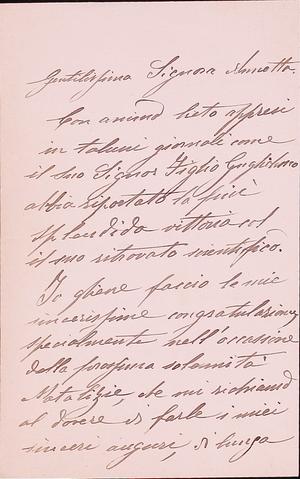 Gentilissima Signora Annetta.
Con animo lieto appresi
in taluni giornali come
il suo Signor Figlio Guglielmo
abbia riportato la più
splendida vittoria col
il suo ritrovato scientifico.
Io gliene faccio le mie
sincerissime congratulazioni,
specialmente nell'occasione
della prossima solennità
Natalizie, che mi richiama
al dovere di farle i miei
sinceri auguri, di lunga